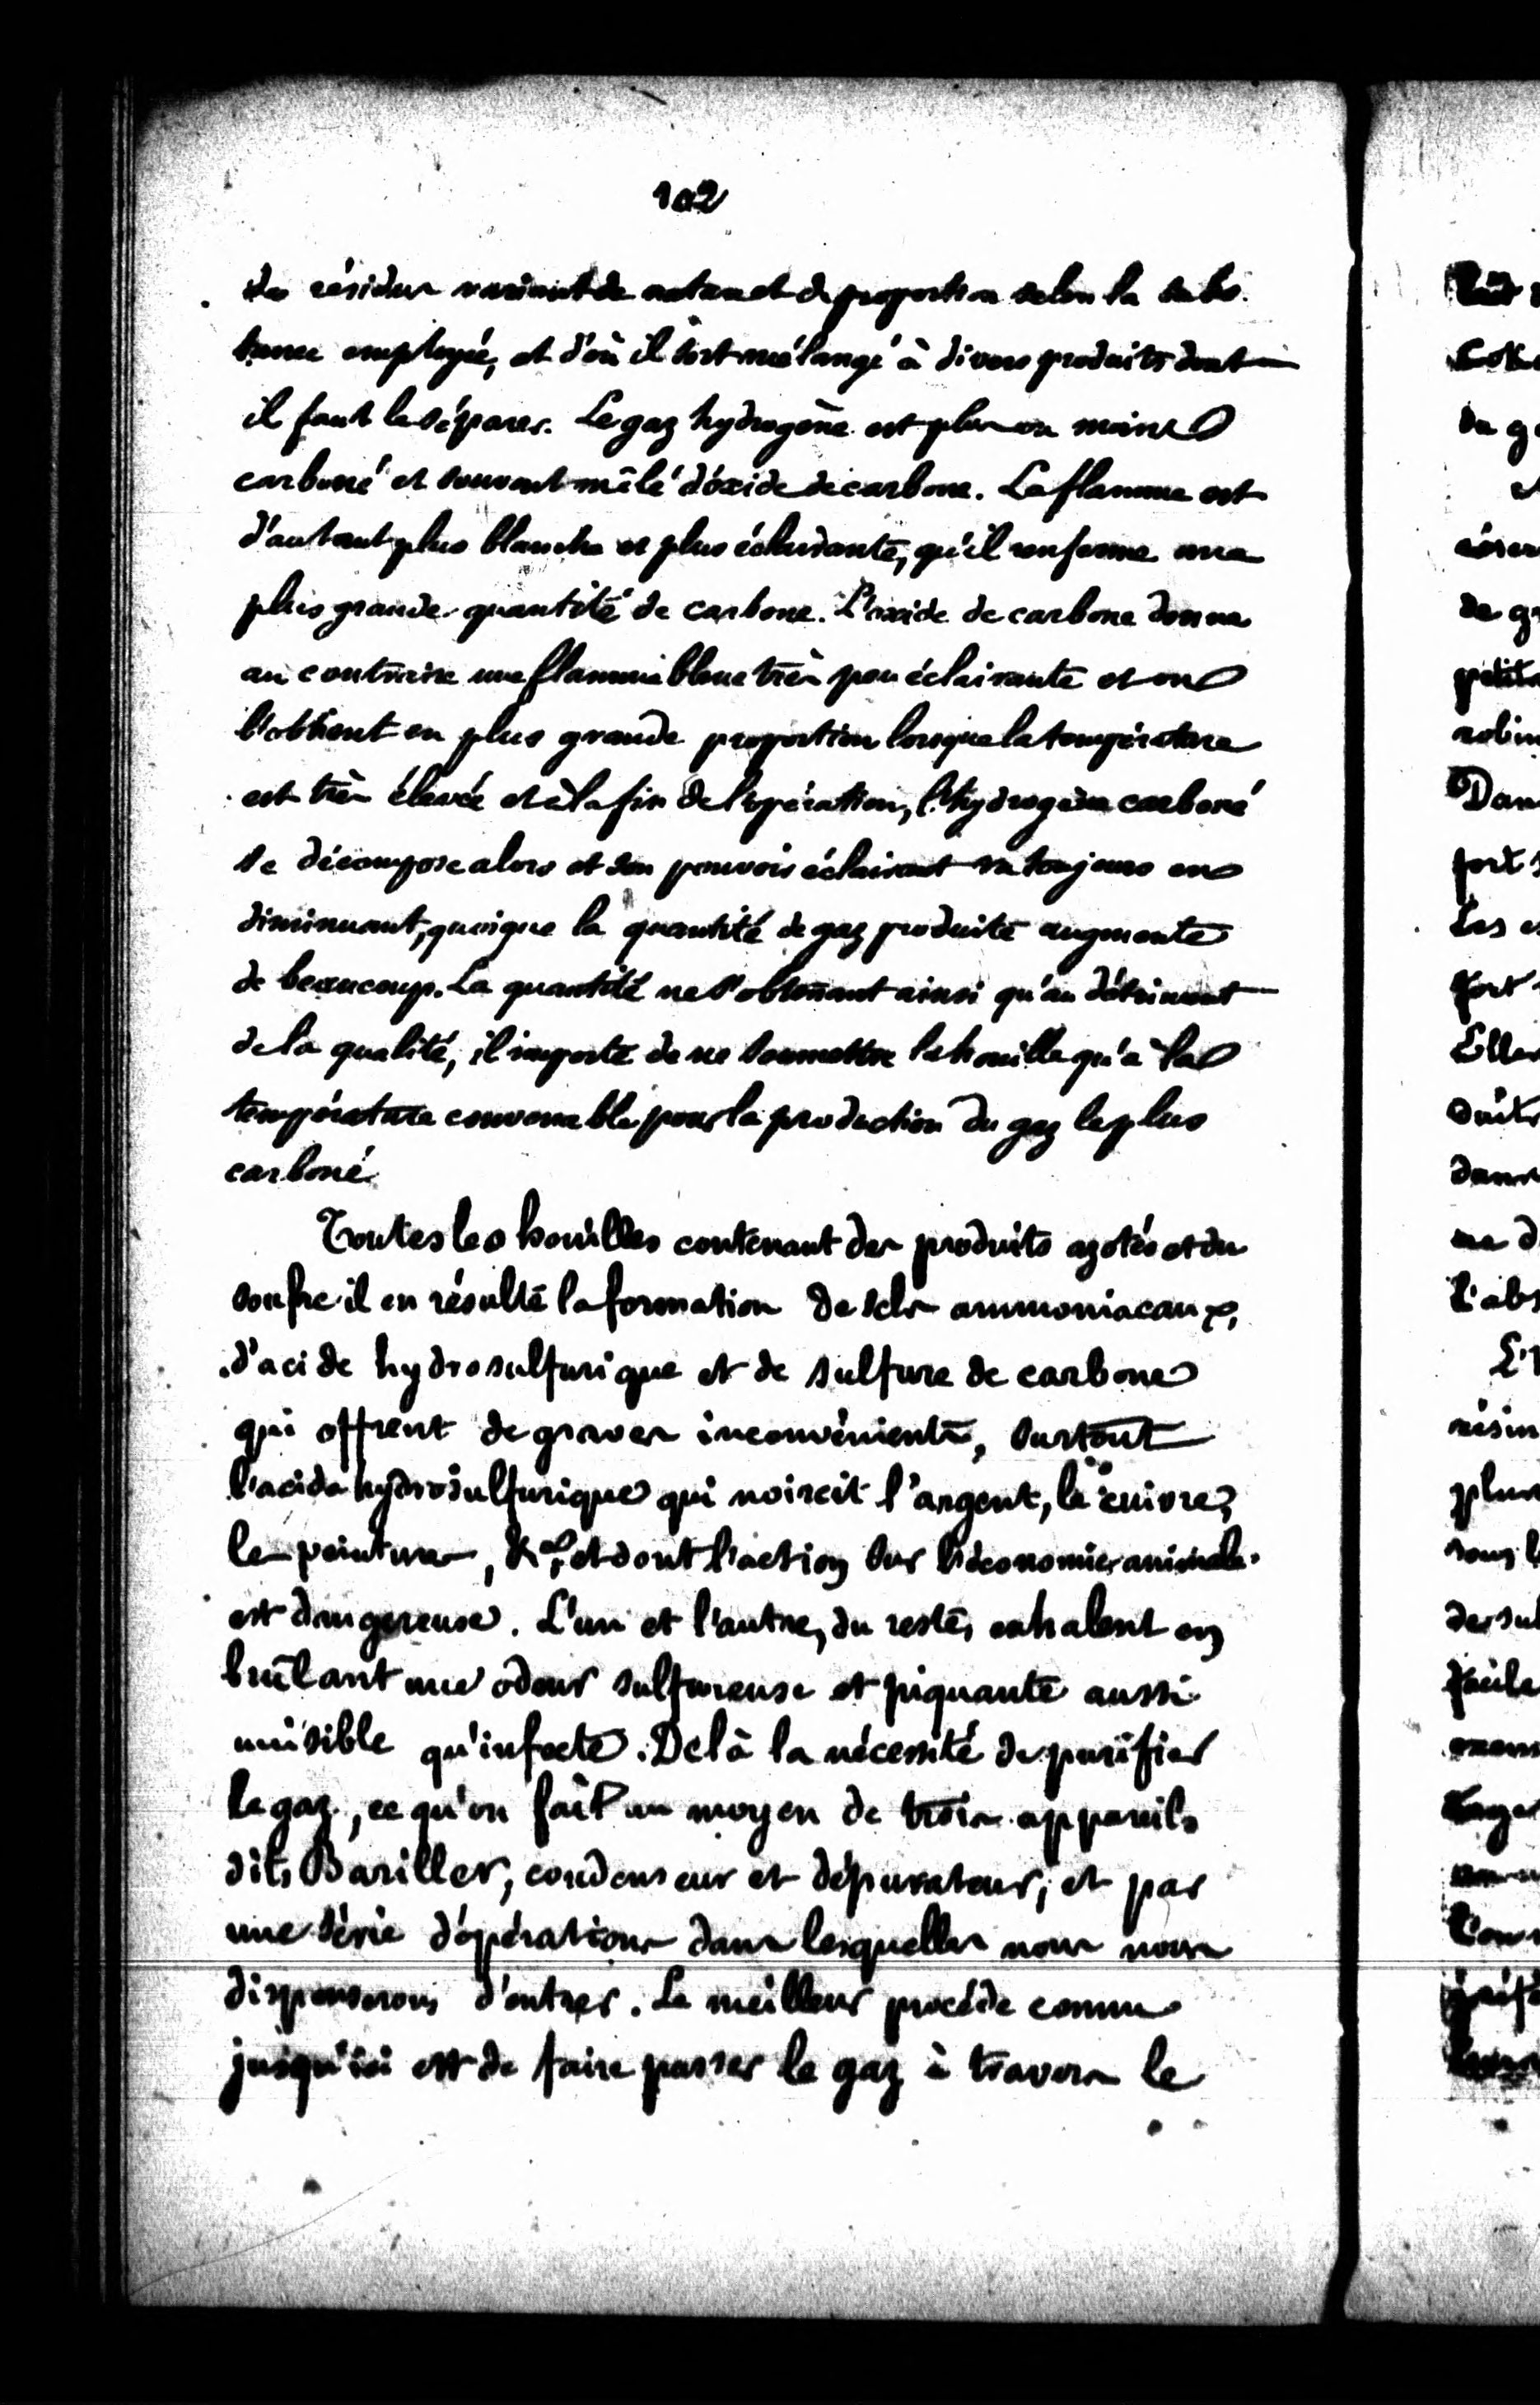 102
des résidus variant de nature et de proportion selon la subs-
tance employée, et d'où il sort mélangé à divers produits dont
il faut le séparer. Le gaz hydrogène est plus ou moins
carboné et souvent mêlé d'oxide de carbone. La flamme est
d'autant plus blanche et plus éclairante, qu'il renferme une
plus grande quantité de carbone. L'oxide de carbone donne
au contraire une flamme bleue très peu éclairante et on
l'obtient en plus grande proportion lorsque la température
est très élevée et à la fin de l'opération, l'hydrogène carboné
se décompose alors et son pouvoir éclairant va toujours en
diminuant, quoique la quantité de gaz produite augmente
de beaucoup. La quantité ne s'obtenant ainsi qu'au détriment
de la qualité, il importe de ne soumettre la houille qu'à la
température convenable pour la production du gaz le plus
carboné
Toutes les houilles contenant des produits azotés et du
soufre il en résulte la formation de sels ammoniacaux,
d'acide hydrosulfurique et de sulfure de carbone
qui offrent de graves inconvénients, surtout
l'acide hydrosulfurique qui noircit l'argent, le cuivre,
les peintures, &c, et dont l'action sur l'économie animale
est dangereuse. L'un et l'autre, du reste, exhalent en
brûlant une odeur sulfureuse et piquante aussi
nuisible qu'infecte. De là la nécessité de purifier
le gaz, ce qu'on fait au moyen de trois appareils
dits Bariller, condenseur et dépurateur, et par
une série d'opérations dans lesquelles nous nous
dispenserons d'entrer. Le meilleur procédé connu
jusqu'ici est de faire passer le gaz à travers le